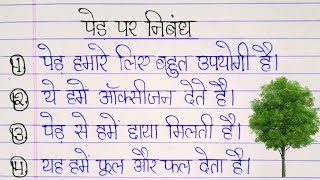 पेड़ पर निबंध
1) पेड़ हमारे लिए बहुत उपयोगी है।
2) ये हमें ऑक्सीजन देते हैं।
3) पेड़ से हमें छाया मिलती है।
4) यह हमें फूल और फल देता है।